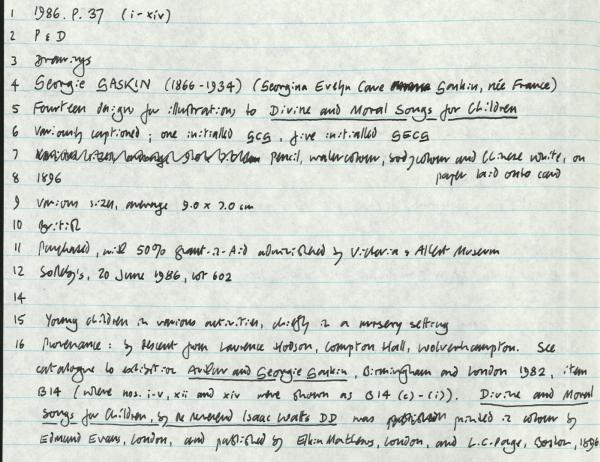 1 1986. P. 37 (i-xiv)
2 P & D
3 Drawings
4 Georgie GASKIN (1866-1934) (Georgina Evelyn Cave Gaskin, née France)
5 Fourteen designs for illustrations to Divine and Moral Songs for Children
6 Variously captioned; one initialled GCG, five initialled GECG
7 Pencil, watercolour, bodycolour and Chinese white, on
paper laid onto card
8 1896
9 Various sizes, average 9.0 x 7.0 cm
10 British
11 Purchased, with 50% grant-in-Aid administered by Victoria & Albert Museum
12 Sotheby's, 20 June 1986, lot 602
14
15 Young children in various activities, chiefly in a nursery setting
16 Provenance: by descent from Laurence Hodson, Compton Hall, Wolverhampton. See
catalogue to exhibition Arthur and Georgie Gaskin, Birmingham and London 1982, item
B14 (where nos. i-v, xii and xiv were shown as B14 (c)-(i)). Divine and Moral
Songs for Children, by the reverend Isaac Watts DD was printed in colour by
Edmund Evans, London, and published by Elkin Mathews, London, and L.C. Page, Boston, 1896